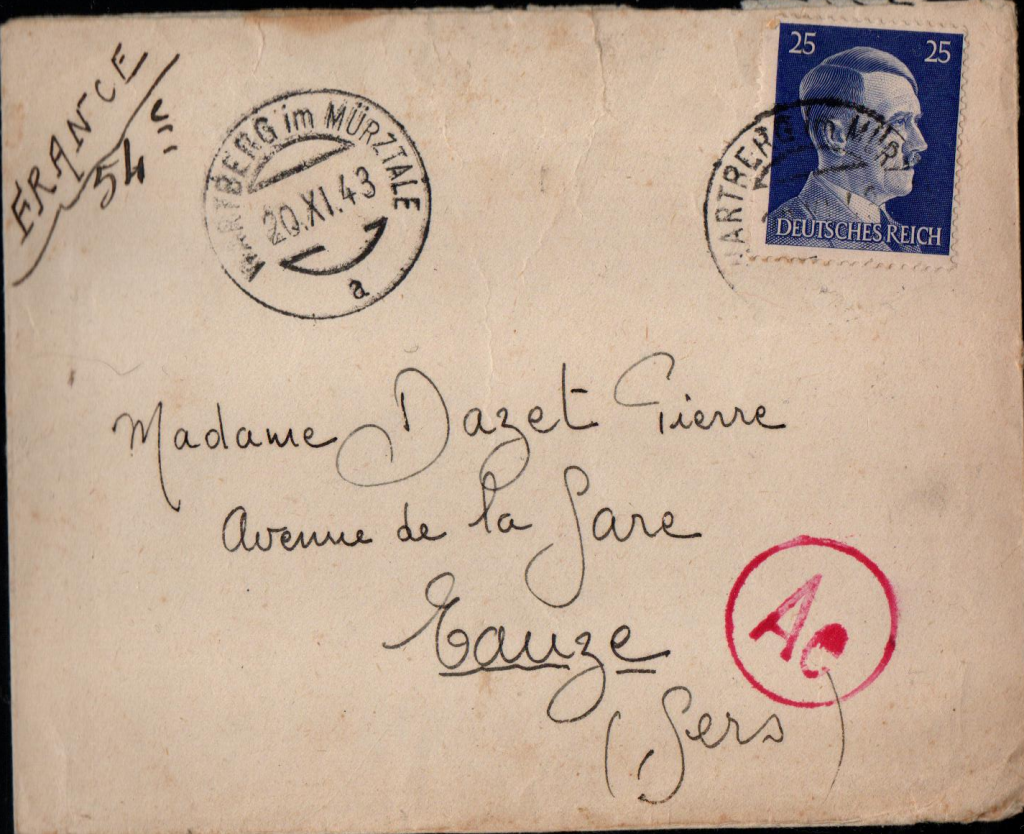 FRANCE
54
WARTBERG im MÜRZTALE
20.XI.43
a
25 25
DEUTSCHES REICH
WARTBERG im MÜR
Madame Dazet Pierre
Avenue de la Gare
Eauze
(Gers)
Ae